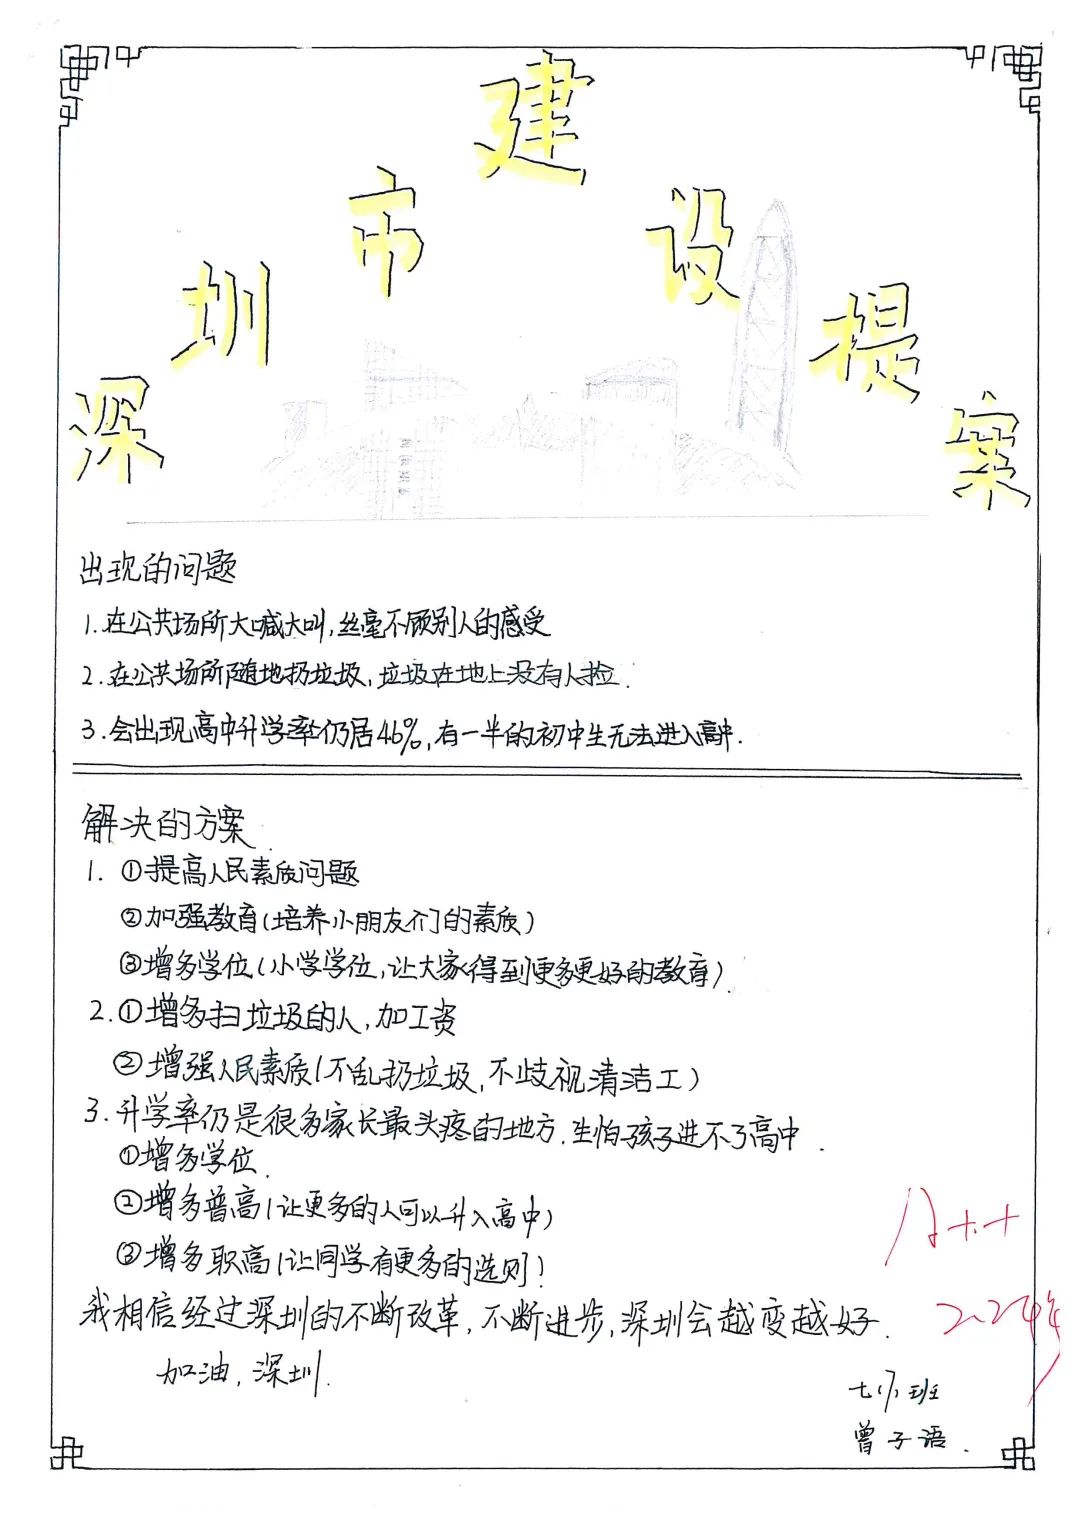 深圳市建设提案
出现的问题
1.在公共场所大喊大叫,丝毫不顾别人的感受
2.在公共场所随地扔垃圾,垃圾在地上没有人捡.
3.会出现高中升学率仍居46%,有一半的初中生无法进入高中.
解决的方案.
1. ①提高人民素质问题
②加强教育(培养小朋友们的素质)
③增多学位(小学学位,让大家得到更多更好的教育).
2.①增多扫垃圾的人,加工资
②增强人民素质(不乱扔垃圾,不歧视清洁工)
3.升学率仍是很多家长最头疼的地方.生怕孩子进不了高中.
①增多学位.
②增多普高(让更多的人可以升入高中)
③增多职高(让同学有更多的选则)
我相信经过深圳的不断改革,不断进步,深圳会越变越好.
加油,深圳.
A++
曾子语.